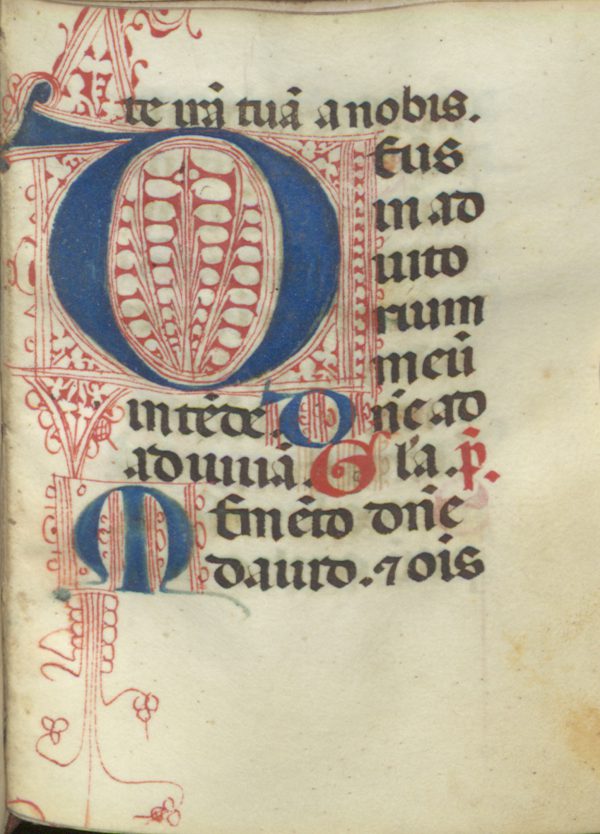 te irã tuã a nobis.
Deus
in ad
iuto
rium
meũ
intẽde. Dñe ad
adiuuã. Gl'a .p̃.
Memẽto dñe
dauid. ⁊ oĩs